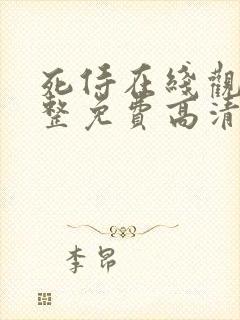 死侍在綫觀
整免費高清
李昂